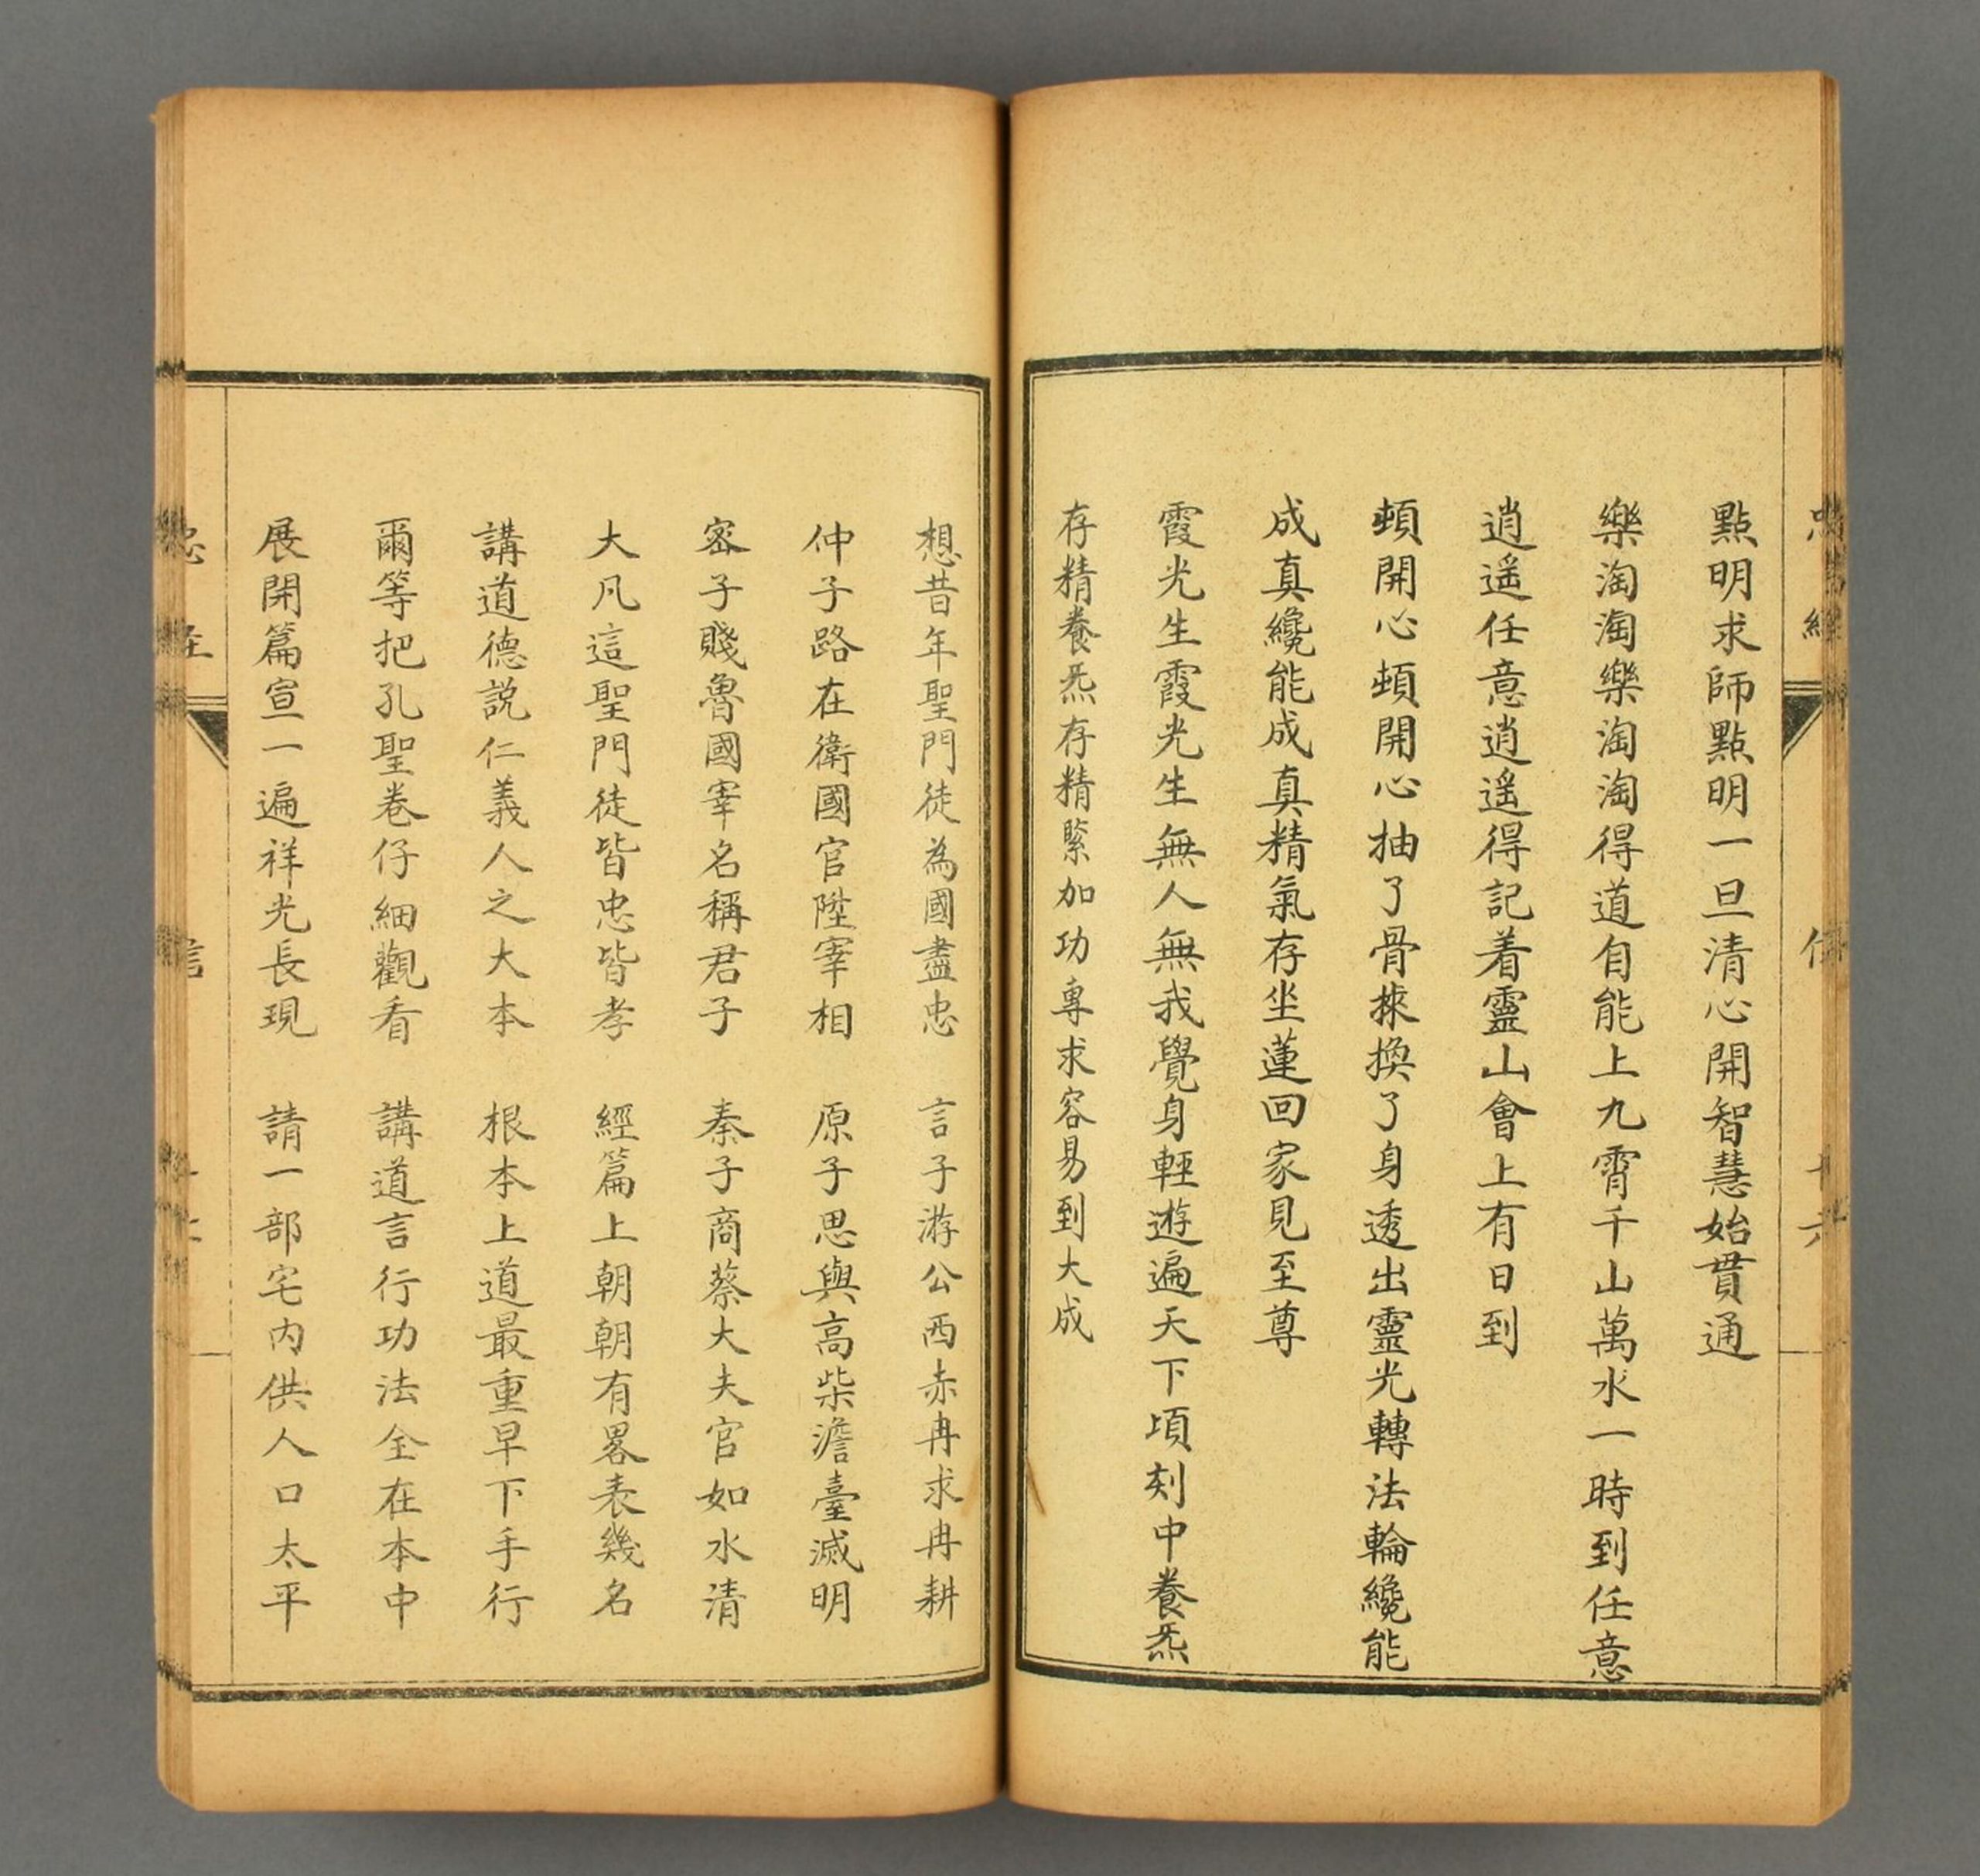 點明求師點明一旦清心開智慧始貫通
樂淘淘樂淘淘得道自能上九霄千山萬水一時到任意
逍遥任意逍遥得記着靈山會上有日到
頓開心頓開心抽了骨𢱢換了身透出靈光轉法輪纔能
成真纔能成真精氣存坐蓮回家見至尊
霞光生霞光生無人無我覺身輕遊遍天下頃刻中養炁
存精養炁存精緊加功專求容易到大成
想昔年聖門徒為國盡忠 言子游公西赤冉求冉耕
仲子路在衛國官陞宰相 原子思與高柴澹臺滅明
宻子賤魯國宰名稱君子 秦子商蔡大夫官如水清
大凡這聖門徒皆忠皆孝 經篇上朝朝有畧表幾名
講道德説仁義人之大本 根本上道最重早下手行
爾等把孔聖卷仔細觀看 講道言行功法全在本中
展開篇宣一遍祥光長現 請一部宅內供人口太平